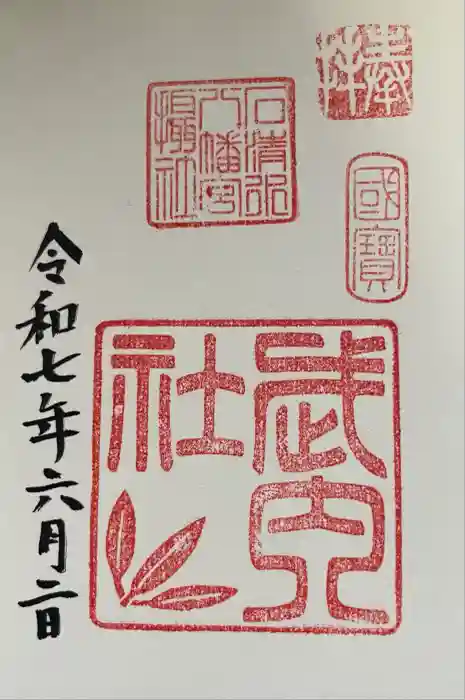 奉拝
國寶
石清水
八幡宮
攝社
武内
社
令和七年六月二日